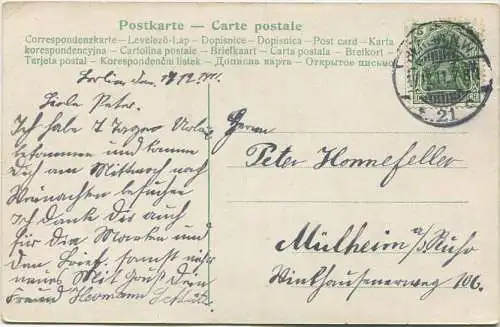 Postkarte — Carte postale
Correspondenzkarte – Levelező-Lap – Dopisnice – Dopisnica – Post card – Karta
korespondencyjna – Cartolina postale – Briefkaart – Carta postala – Brefkort –
Tarjeta postal – Korespondenčni listek – Дописна карта – Открытое письмо
Berlin den 17.12.
Liebe Peter.
Ich habe 7 Tage Urlaub
bekommen und komme
Dich am Mittwoch nach
Weihnachten besuchen
Ich Dank Dir auch
für die Marken und
den Brief. sonst nichts
neues Mit Gruß Dein
Freund Hermann
Herrn
Peter Honnefeller
Mülheim a/d. Ruhr
Winkhausenerweg 106.
21